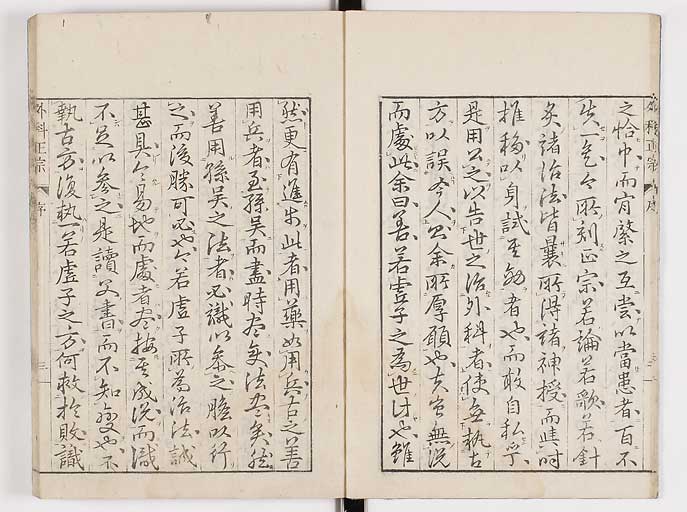 之恰中而肯綮之互嘗以當患者百不
失一矣今所刻正宗若論若歌若針
灸諸治法皆曩所得諸神授而與時
推移以身試至効者也而敢自私乎
是用公之以告世之治外科者使無執古
方以誤今人公余所厚願也夫豈無說
而處此余曰善若虛子之為世計也雖
然更有進乎此者用藥如用兵古之善
用兵者至孫吳而盡時尽矣法尽矣然
善用孫吳之法者必識以参之膽以行
之而後勝可必也今若虛子所為治法誠
甚具令易地而處者尽按其成說而識
不足以參之是讀父書而不知變也不
執古方復執一若虛子之方何救於敗識
外科正宗
序
三